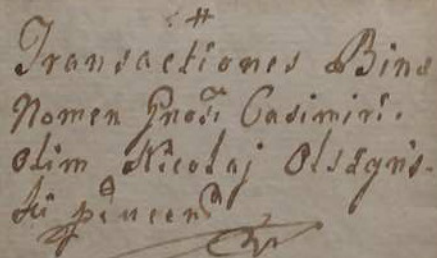 #
Transactiones Bina
Nomen Gnosi Casimiri.
olim Nicolaj Olszans-
ki